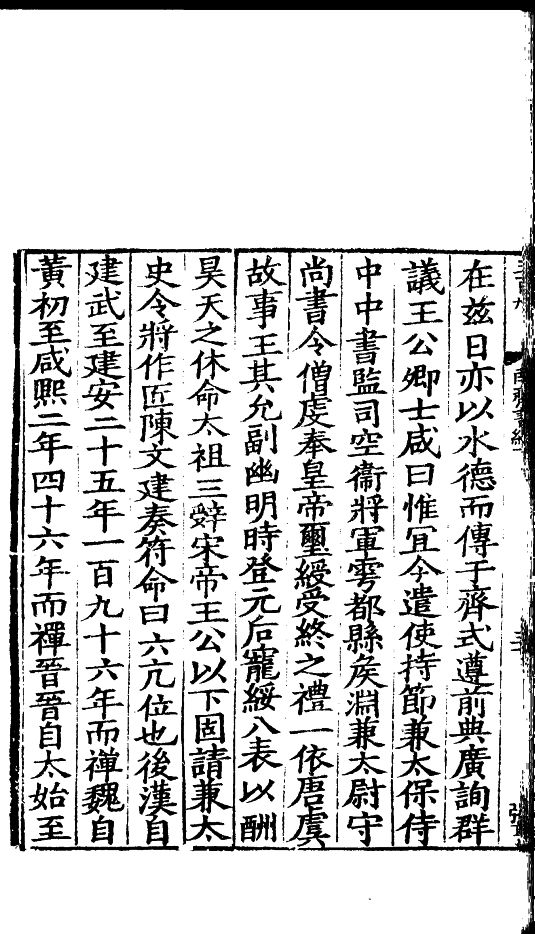 在茲日亦以水德而傳于齊式遵前典廣詢群
議王公卿士咸曰惟冝今遣使持節兼太保侍
中中書監司空衞將軍雩都縣矦淵兼太尉守
尚書令僧虔奉皇帝璽綬受終之禮一依唐虞
故事王其允副幽明時登元后寵綏八表以酬
昊天之休命太祖三辤宋帝王公以下固請兼太
史令將作匠陳文建奏符命曰六亢位也後漢自
建武至建安二十五年一百九十六年而禪魏自
黃初至咸熙二年四十六年而禪晉晉自太始至